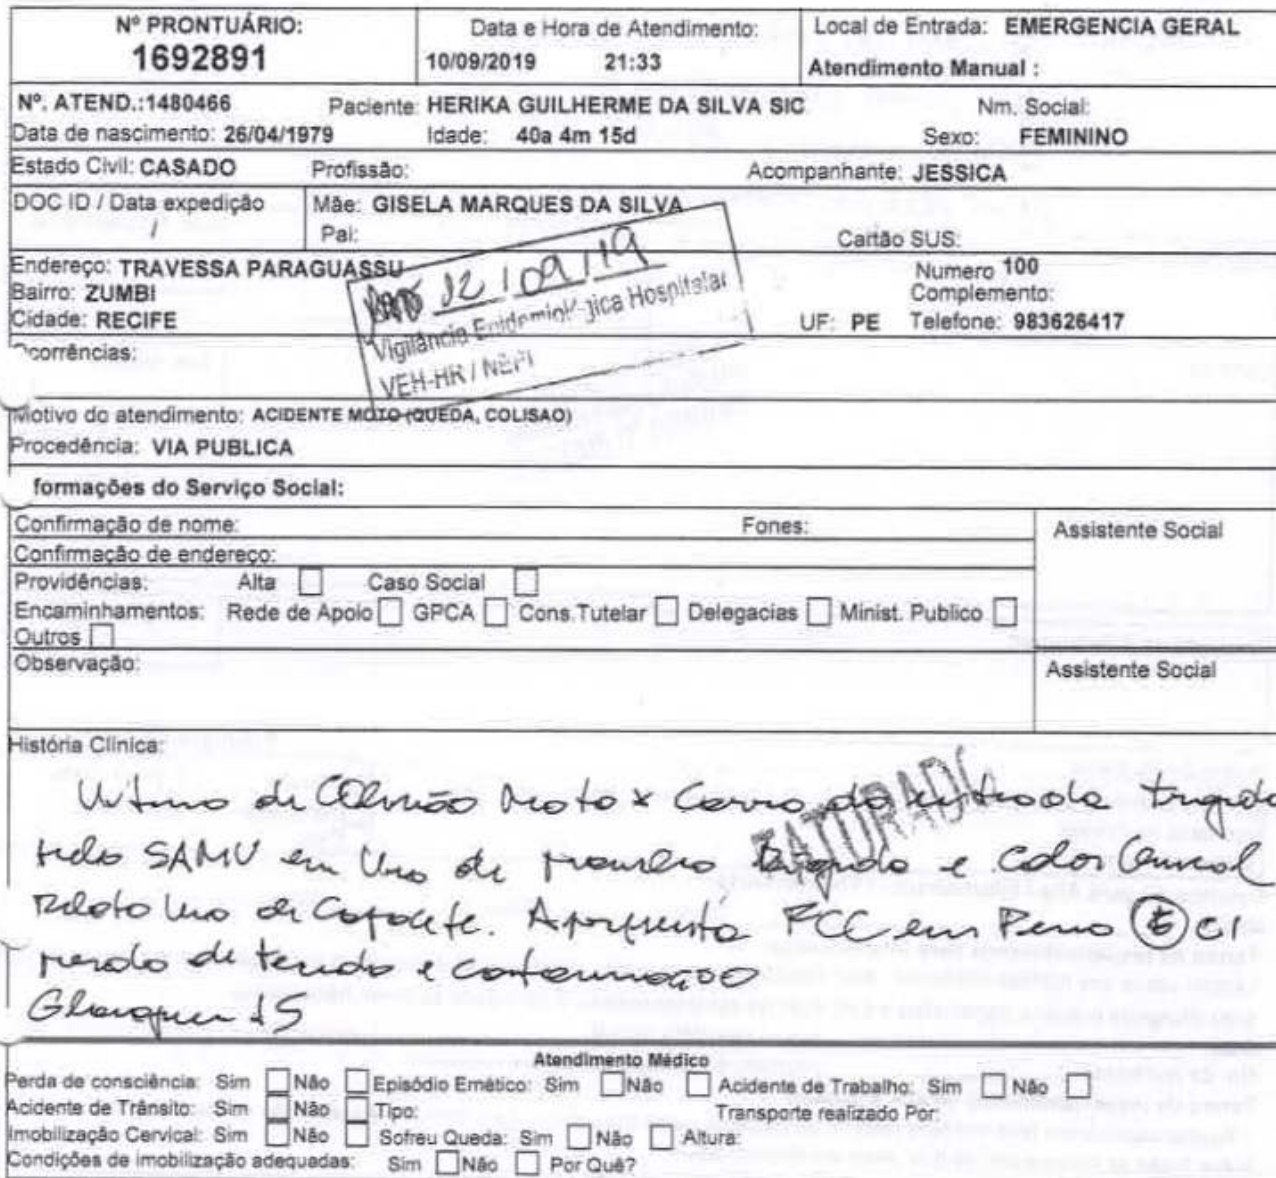 Nº PRONTUÁRIO:
1692891
Data e Hora de Atendimento:
10/09/2019 21:33
Local de Entrada: EMERGENCIA GERAL
Atendimento Manual :
Nº. ATEND.:1480466 Paciente: HERIKA GUILHERME DA SILVA SIC Nm. Social:
Data de nascimento: 26/04/1979 Idade: 40a 4m 15d Sexo: FEMININO
Estado Civil: CASADO Profissão: Acompanhante: JESSICA
DOC ID / Data expedição
/
Mãe: GISELA MARQUES DA SILVA
Pai: Cartão SUS:
Endereço: TRAVESSA PARAGUASSU Numero 100
Bairro: ZUMBI Complemento:
Cidade: RECIFE UF: PE Telefone: 983626417
12/09/19
Vigilância Epidemiológica Hospitalar
VEH-HR / NEPI
Ocorrências:
Motivo do atendimento: ACIDENTE MOTO (QUEDA, COLISAO)
Procedência: VIA PUBLICA
formações do Serviço Social:
Confirmação de nome: Fones: Assistente Social
Confirmação de endereço:
Providências: Alta Caso Social
Encaminhamentos: Rede de Apoio GPCA Cons.Tutelar Delegacias Minist. Publico
Outros
Observação: Assistente Social
História Clínica:
FATURADO
Vítima de Colisão Moto x Carro trazida
pelo SAMU em Uso de prancha rígida e colar Cervical
Relata uso de Capacete. Apresenta FCC em Perna E c/
perda de tecido e contaminação
Glasgow 15
Atendimento Médico
Perda de consciência: Sim Não Episódio Emético: Sim Não Acidente de Trabalho: Sim Não
Acidente de Trânsito: Sim Não Tipo: Transporte realizado Por:
Imobilização Cervical: Sim Não Sofreu Queda: Sim Não Altura:
Condições de imobilização adequadas: Sim Não Por Quê?